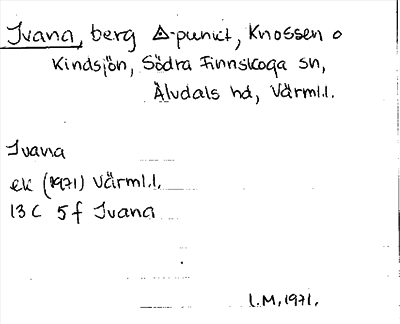 Ivana, berg △-punkt, Knossen o
Kindsjön, Södra Finnskoga sn,
Älvdals hd, Värml.l.
Ivana
ek (1971) Värml.l.
13 C 5 f Ivana
L.M, 1971.